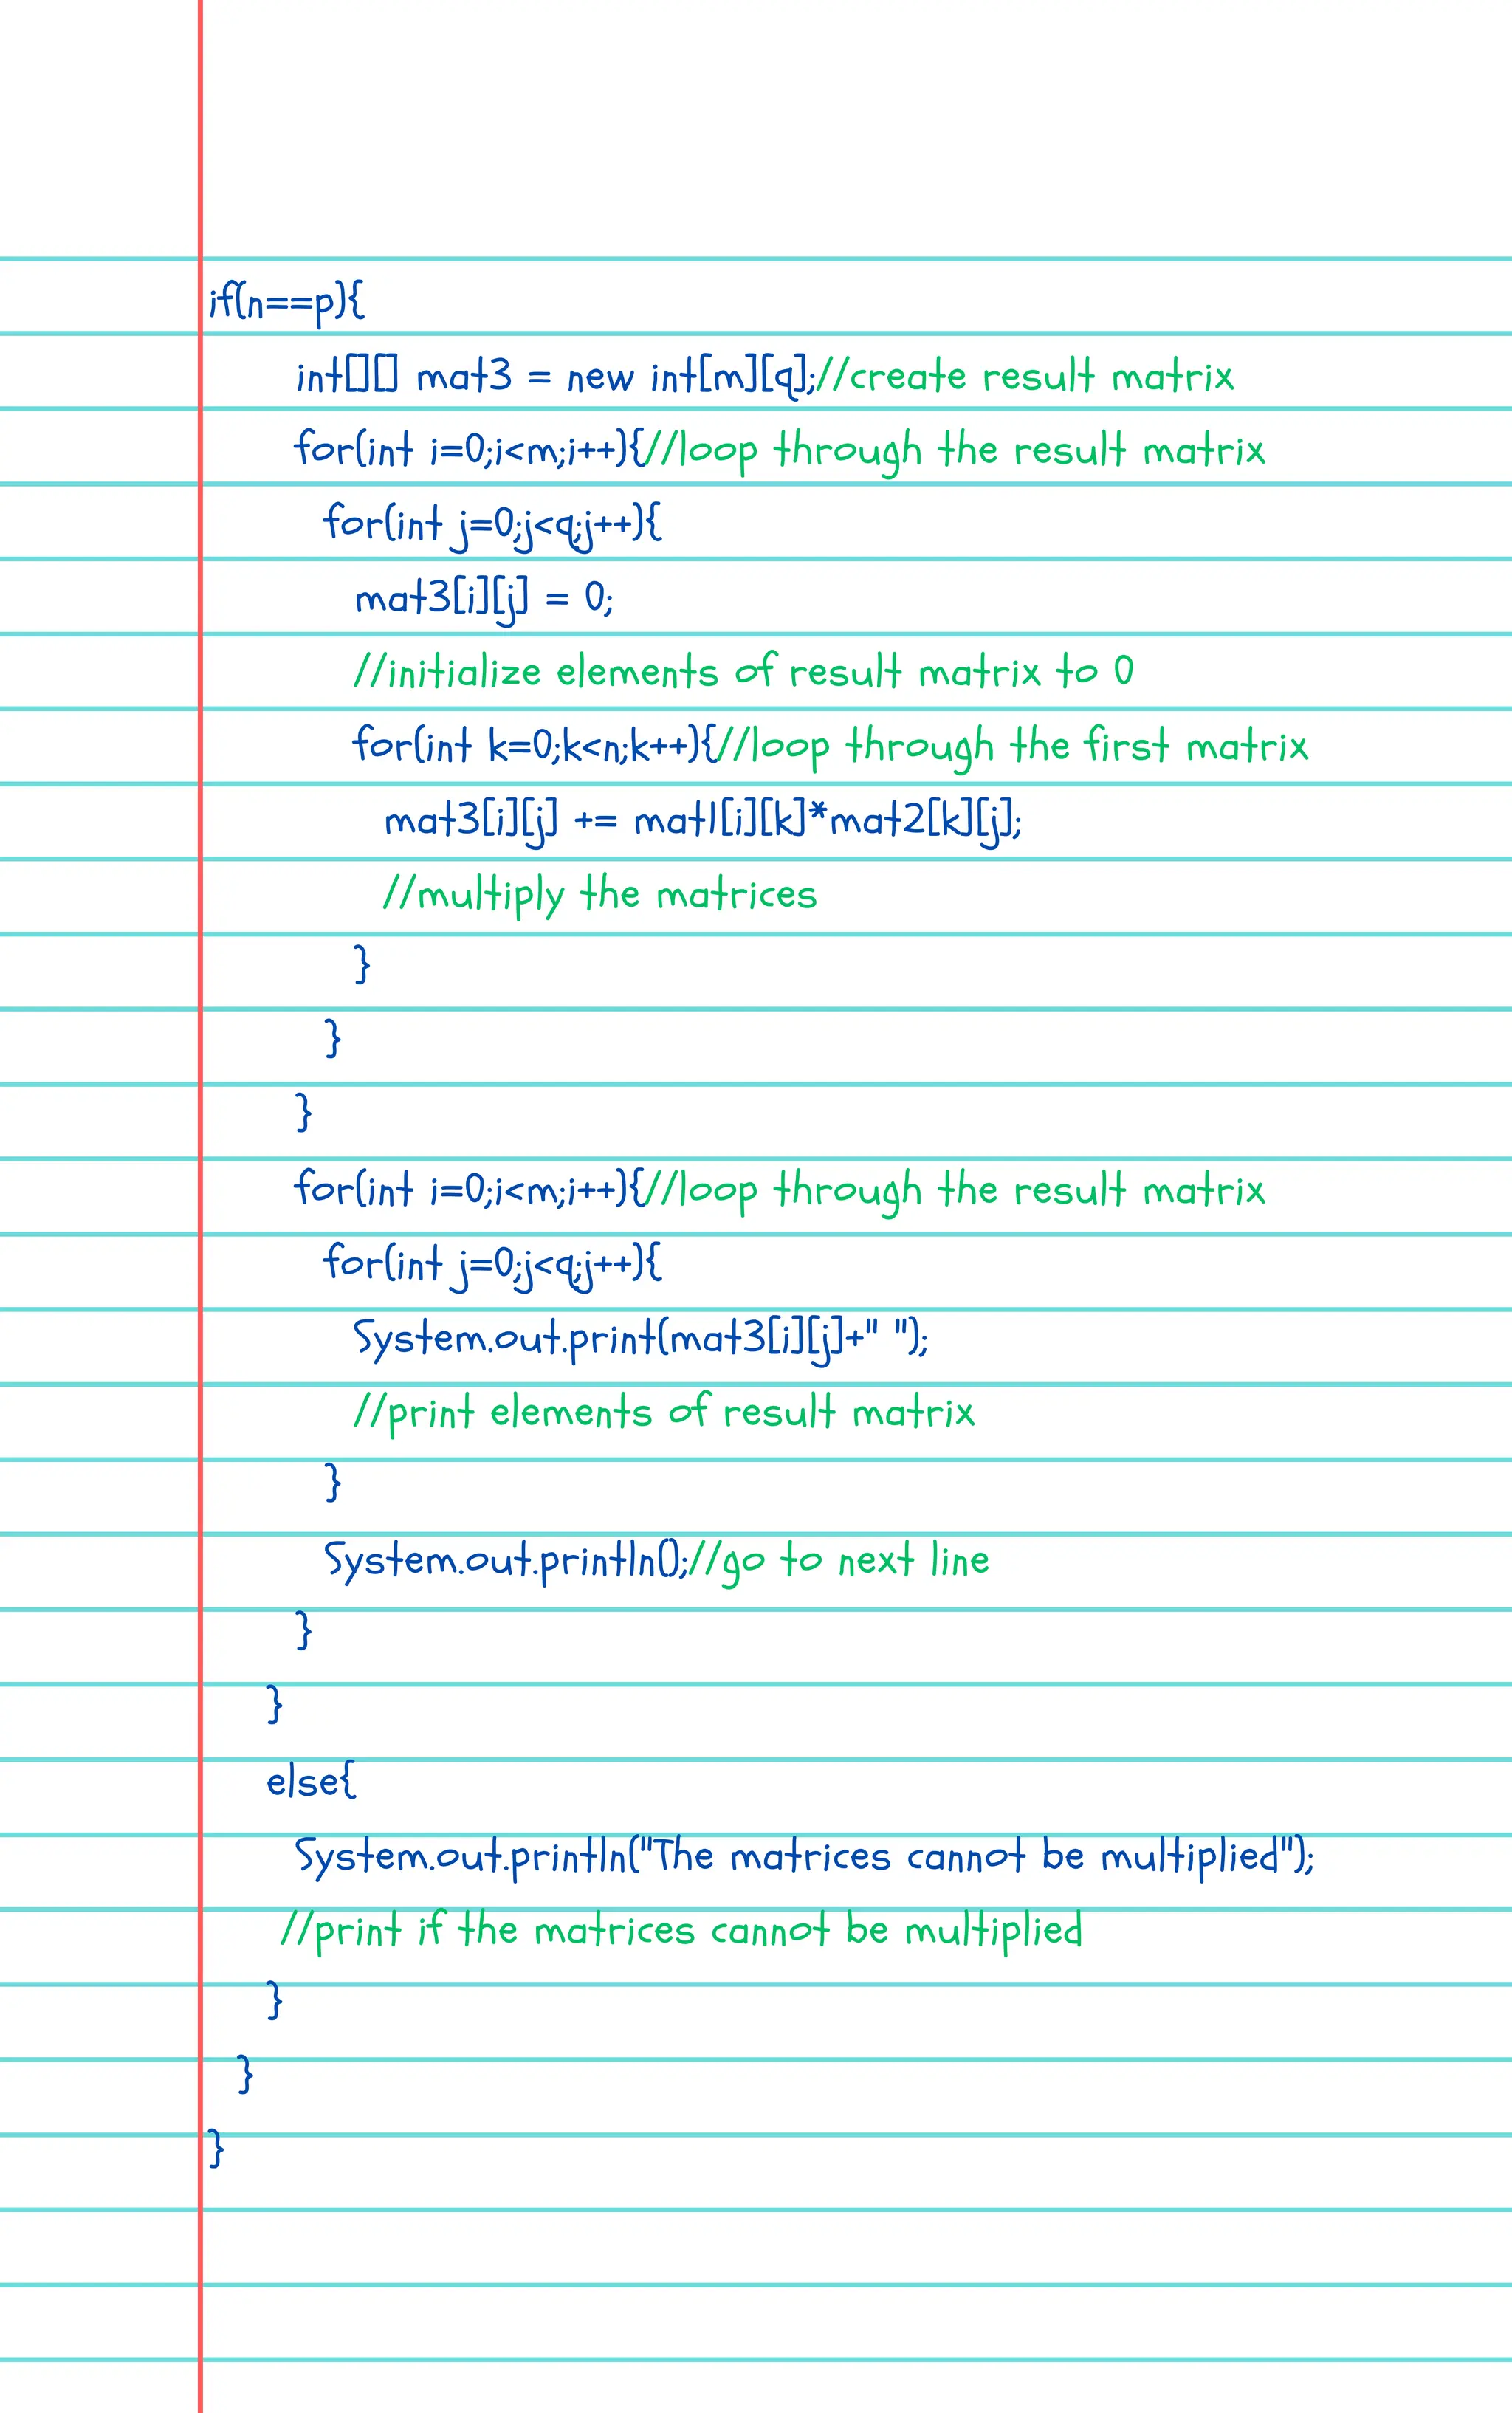 if(n==p){
int[][] mat3 = new int[m][q];//create result matrix
for(int i=0;i<m;i++){//loop through the result matrix
for(int j=0;j<q;j++){
mat3[i][j] = 0;
//initialize elements of result matrix to 0
for(int k=0;k<n;k++){//loop through the first matrix
mat3[i][j] += mat1[i][k]*mat2[k][j];
//multiply the matrices
}
}
}
for(int i=0;i<m;i++){//loop through the result matrix
for(int j=0;j<q;j++){
System.out.print(mat3[i][j]+" ");
//print elements of result matrix
}
System.out.println();//go to next line
}
}
else{
System.out.println("The matrices cannot be multiplied");
//print if the matrices cannot be multiplied
}
}
}